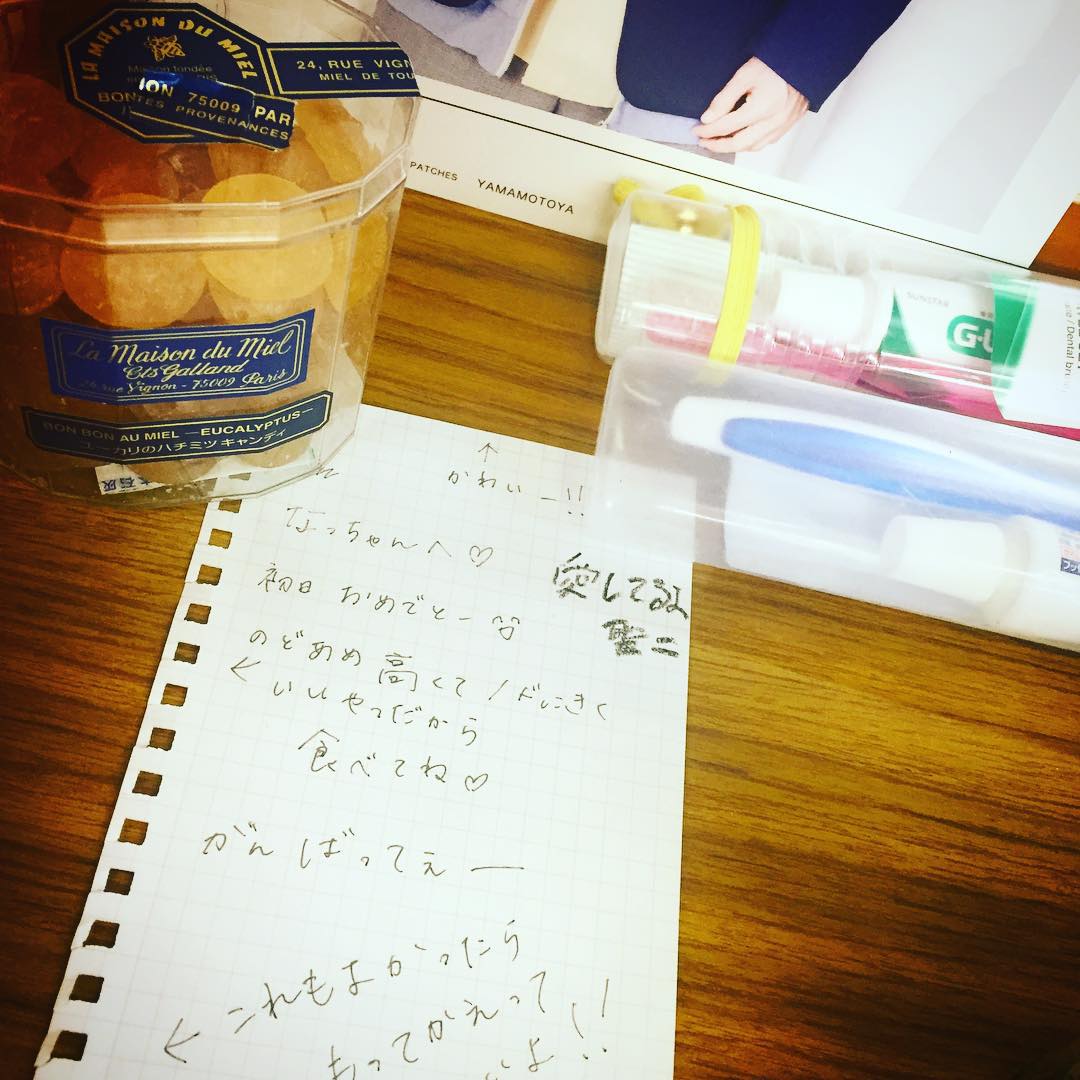 LA MAISON DU MIEL
Maison fondée
ION 75009 PAR
BONTES PROVENANCES
24, RUE VIGN
MIEL DE TOU
La Maison du Miel
Ets Galland
24 rue Vignon - 75009 Paris
BON BON AU MIEL —EUCALYPTUS—
ユーカリのハチミツキャンディ
PATCHES YAMAMOTOYA
SUNSTAR
G·U
↑
かわいー!!
なっちゃんへ♡
初日 おめでとー
のどあめ高くてノドにきく
← いいやつだから
食べてね♡
がんばってぇー
← これもよかったら
もってかえって
よ!!
愛してるよ
聖二